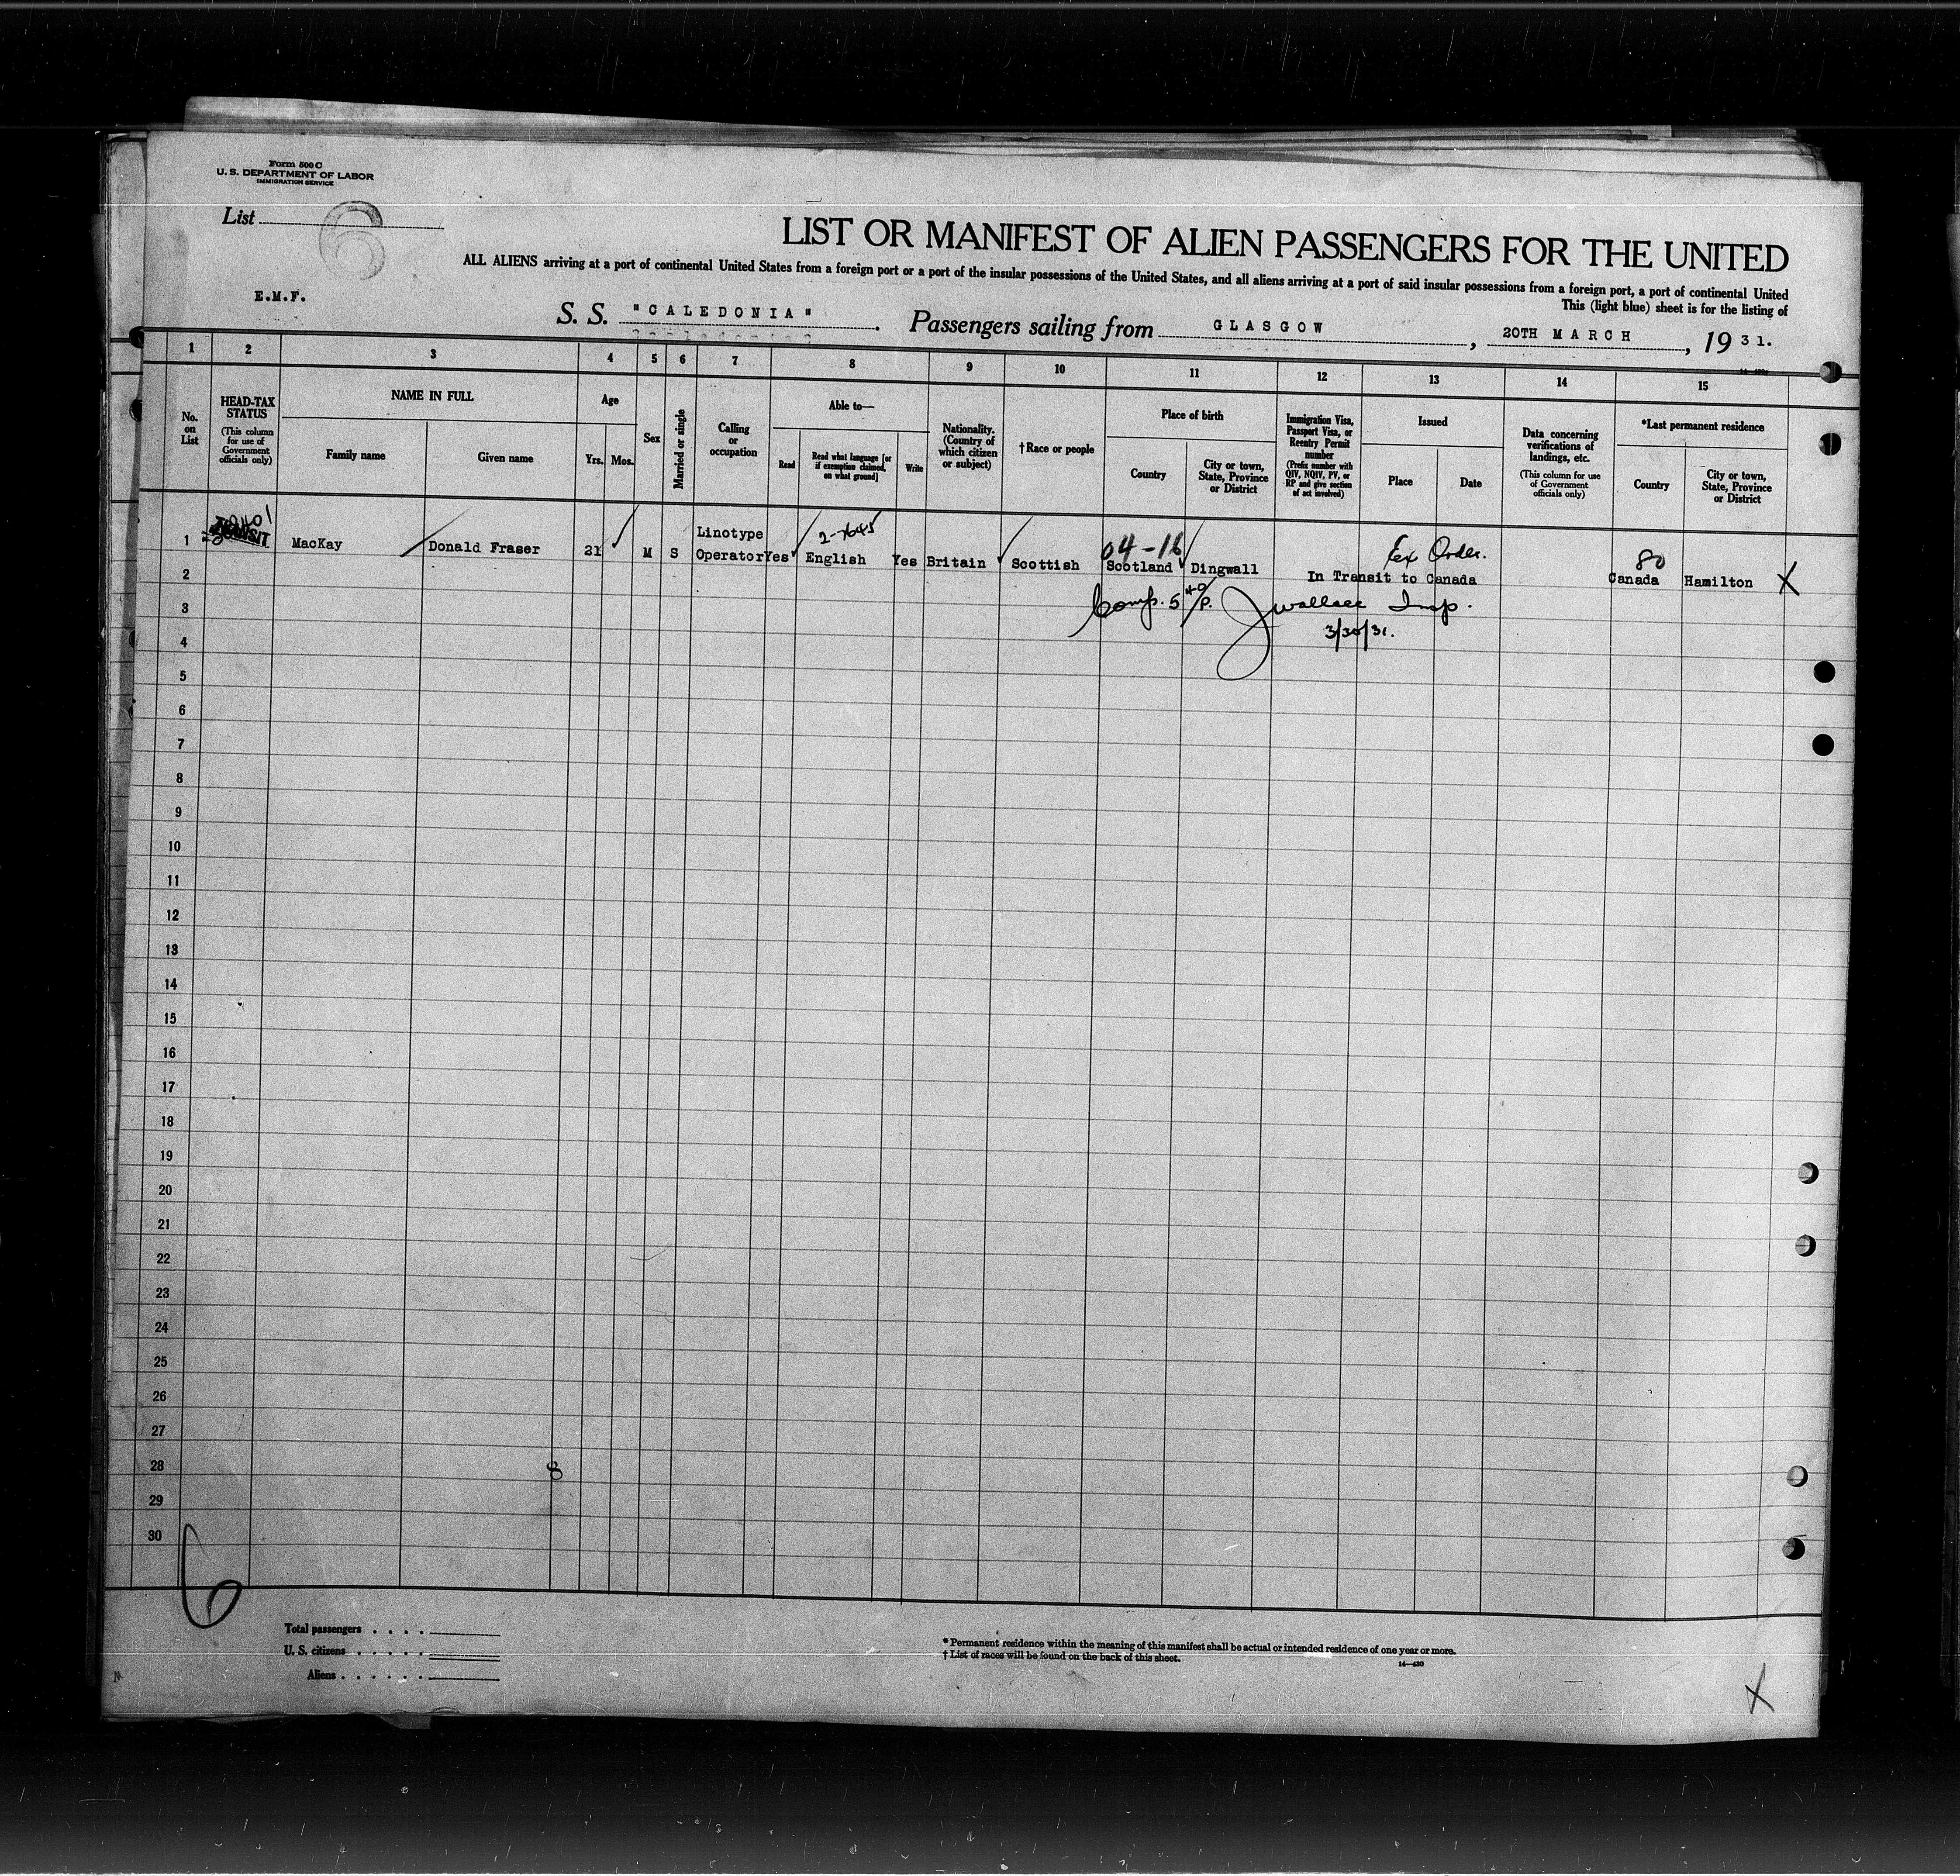 Form 500 C
U. S. DEPARTMENT OF LABOR
IMMIGRATION SERVICE
List
6
LIST OR MANIFEST OF ALIEN PASSENGERS FOR THE UNITED
ALL ALIENS arriving at a port of continental United States from a foreign port or a port of the insular possessions of the United States, and all aliens arriving at a port of said insular possessions from a foreign port, a port of continental United
This (light blue) sheet is for the listing of
E.M.F.
S. S. "CALEDONIA". Passengers sailing from GLASGOW, 20TH MARCH, 1931.
1 2 3 4 5 6 7 8 9 10 11 12 13 14 15
No. on List
HEAD-TAX STATUS
(This column for use of Government officials only)
NAME IN FULL
Family name
Given name
Age
Yrs. Mos.
Sex
Married or single
Calling or occupation
Able to—
Read
Read what language [or if exemption claimed, on what ground]
Write
Nationality. (Country of which citizen or subject)
†Race or people
Place of birth
Country
City or town, State, Province or District
Immigration Visa, Passport Visa, or Reentry Permit number
(Prefix number with QIV, NQIV, PV, or RP and give section of act involved)
Issued
Place
Date
Data concerning verifications of landings, etc.
(This column for use of Government officials only)
*Last permanent residence
Country
City or town, State, Province or District
2-7645
04-16
Ex Order.
80
1 TRANSIT MacKay Donald Fraser 21 M S Linotype Operator Yes English Yes Britain Scottish Scotland Dingwall In Transit to Canada Canada Hamilton X
Comp. 5 40/P. J Wallace Insp.
3/30/31.
2
3
4
5
6
7
8
9
10
11
12
13
14
15
16
17
18
19
20
21
22
23
24
25
26
27
28
8
29
30
6
Total passengers . . . .
U. S. citizens . . . . .
Aliens . . . . . .
* Permanent residence within the meaning of this manifest shall be actual or intended residence of one year or more.
† List of races will be found on the back of this sheet.
14—430
X